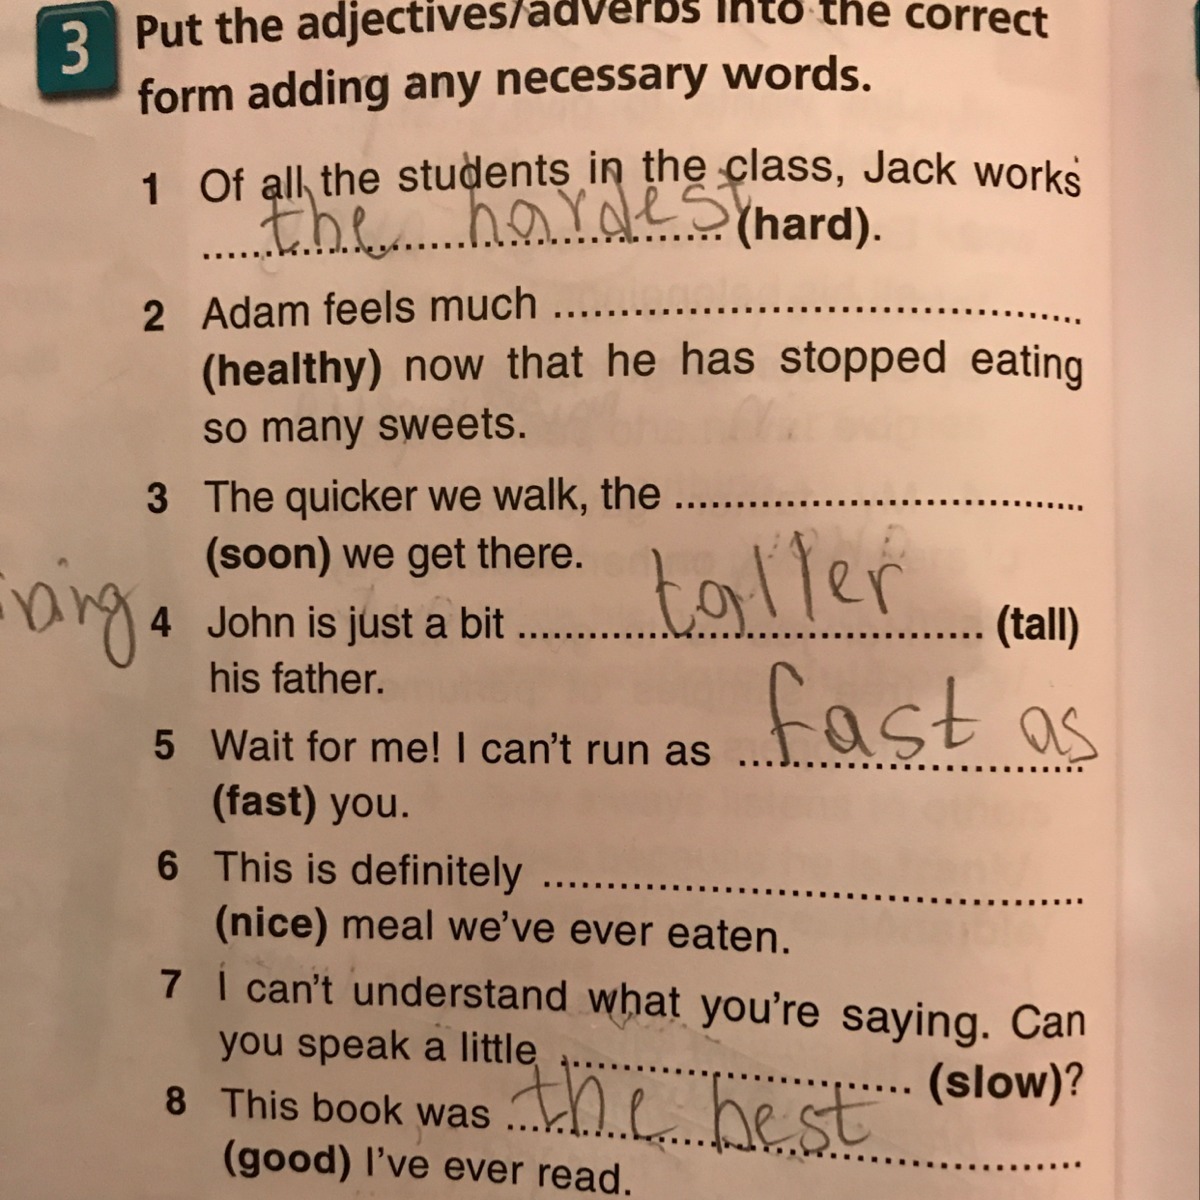 3 Put the adjectives/adverbs into the correct
form adding any necessary words.
1 Of all the students in the class, Jack works
the hardest (hard).
2 Adam feels much ........................................
(healthy) now that he has stopped eating
so many sweets.
3 The quicker we walk, the ................................
(soon) we get there.
4 John is just a bit taller (tall)
his father.
5 Wait for me! I can't run as fast as
(fast) you.
6 This is definitely ..........................................
(nice) meal we've ever eaten.
7 I can't understand what you're saying. Can
you speak a little ........................... (slow)?
8 This book was the best
(good) I've ever read.